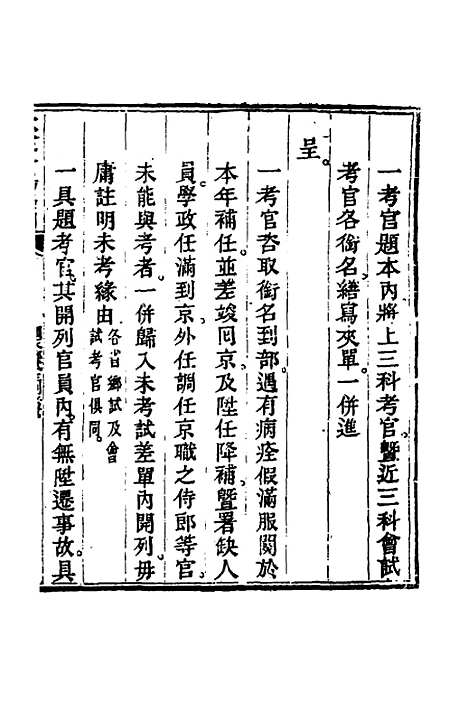 一考官題本內將上三科考官。暨近三科會試
考官各銜名繕寫夾單。一併進
呈。
一考官咨取銜名到部。遇有病痊假滿服闋於
本年補任。並差竣回京及陞任降補。暨署缺人
員。學政任滿到京外任調任京職之侍郎等官。
未能與考者。一併歸入未考試差單內開列。毋
庸註明未考緣由。各省鄉試及會
試考官俱同。
一具題考官。其開列官員內。有無陞遷事故。具